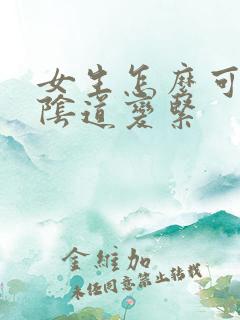 女生怎麼可
陰道變緊
金維加
未经同意禁止转载